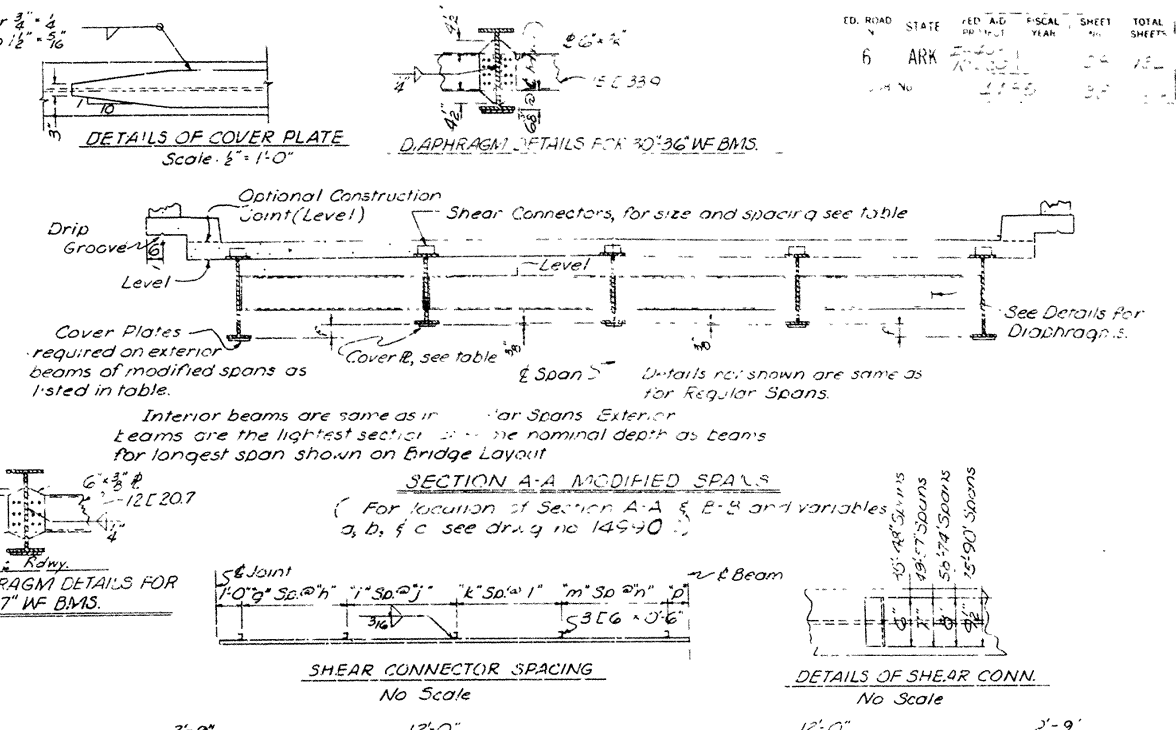 ED. ROAD STATE FISCAL YEAR SHEET TOTAL SHEETS
6 ARK
3/4" = 1/4
1 1/2" = 5/16
1
10
3"
DETAILS OF COVER PLATE
Scale - 1/2" = 1'-0"
4 1/2"
1/4"
4 1/2"
15 [ 33.9
DIAPHRAGM DETAILS FOR 30"-36" WF BMS.
Optional Construction
Joint (Level)
Shear Connectors, for size and spacing see table
Drip
Groove
6"
Level
Level
See Details for
Diaphragms.
Cover Plates
required on exterior
beams of modified spans as
listed in table.
Cover ℞, see table
3/8"
3/8"
℄ Span
Details not shown are same as
for Regular Spans.
Interior beams are same as in Spans Exterior
beams are the lightest section nominal depth as beams
for longest span shown on Bridge Layout
SECTION A-A MODIFIED SPANS
( For location of Section A-A & B-B and variables
a, b, & c see drwg no 14990 )
6" x 3/8" ℞
12 [ 20.7
1/4"
Rdwy.
RAGM DETAILS FOR
7" WF BMS.
℄ Joint
℄ Beam
1'-0" "g" Sp. @ "h" "i" Sp. @ "j" "k" Sp. @ "l" "m" Sp @ "n" "p"
3/16
3 [ 6 x 0'-6"
SHEAR CONNECTOR SPACING
No Scale
Spans
Spans
56'-74' Spans
75'-90' Spans
6"
7"
8"
DETAILS OF SHEAR CONN.
No Scale
12'-0" 12'-0"